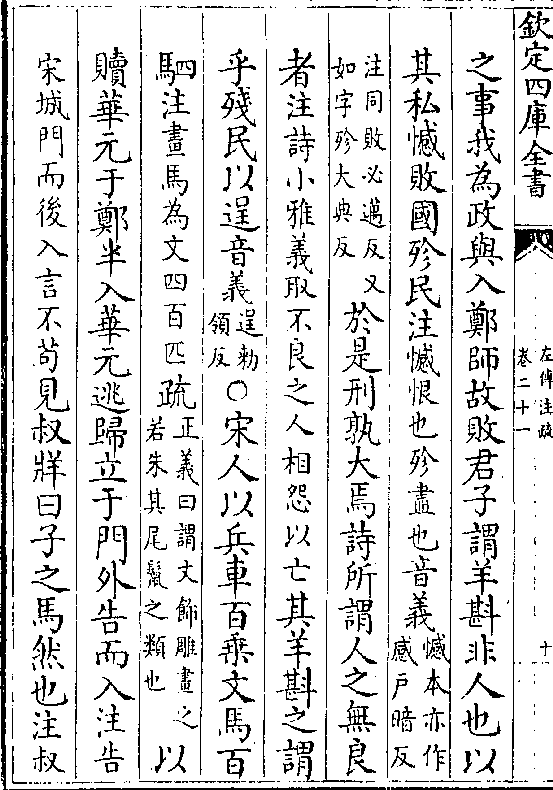 欽定四庫全書
左傳注疏
卷二十一
十
之事我為政與入鄭師故敗君子謂羊斟非人也以
其私憾敗國殄民注憾恨也殄盡也音義憾本亦作
感戶暗反
注同敗必邁反又
如字殄大典反於是刑孰大焉詩所謂人之無良
者注詩小雅義取不良之人相怨以亡其羊斟之謂
乎殘民以逞音義逞勑
領反○宋人以兵車百乗文馬百
駟注畫馬為文四百匹疏正義曰謂文飾雕畫之
若朱其尾鬛之類也以
贖華元于鄭半入華元逃歸立于門外告而入注告
宋城門而後入言不苟見叔牂曰子之馬然也注叔